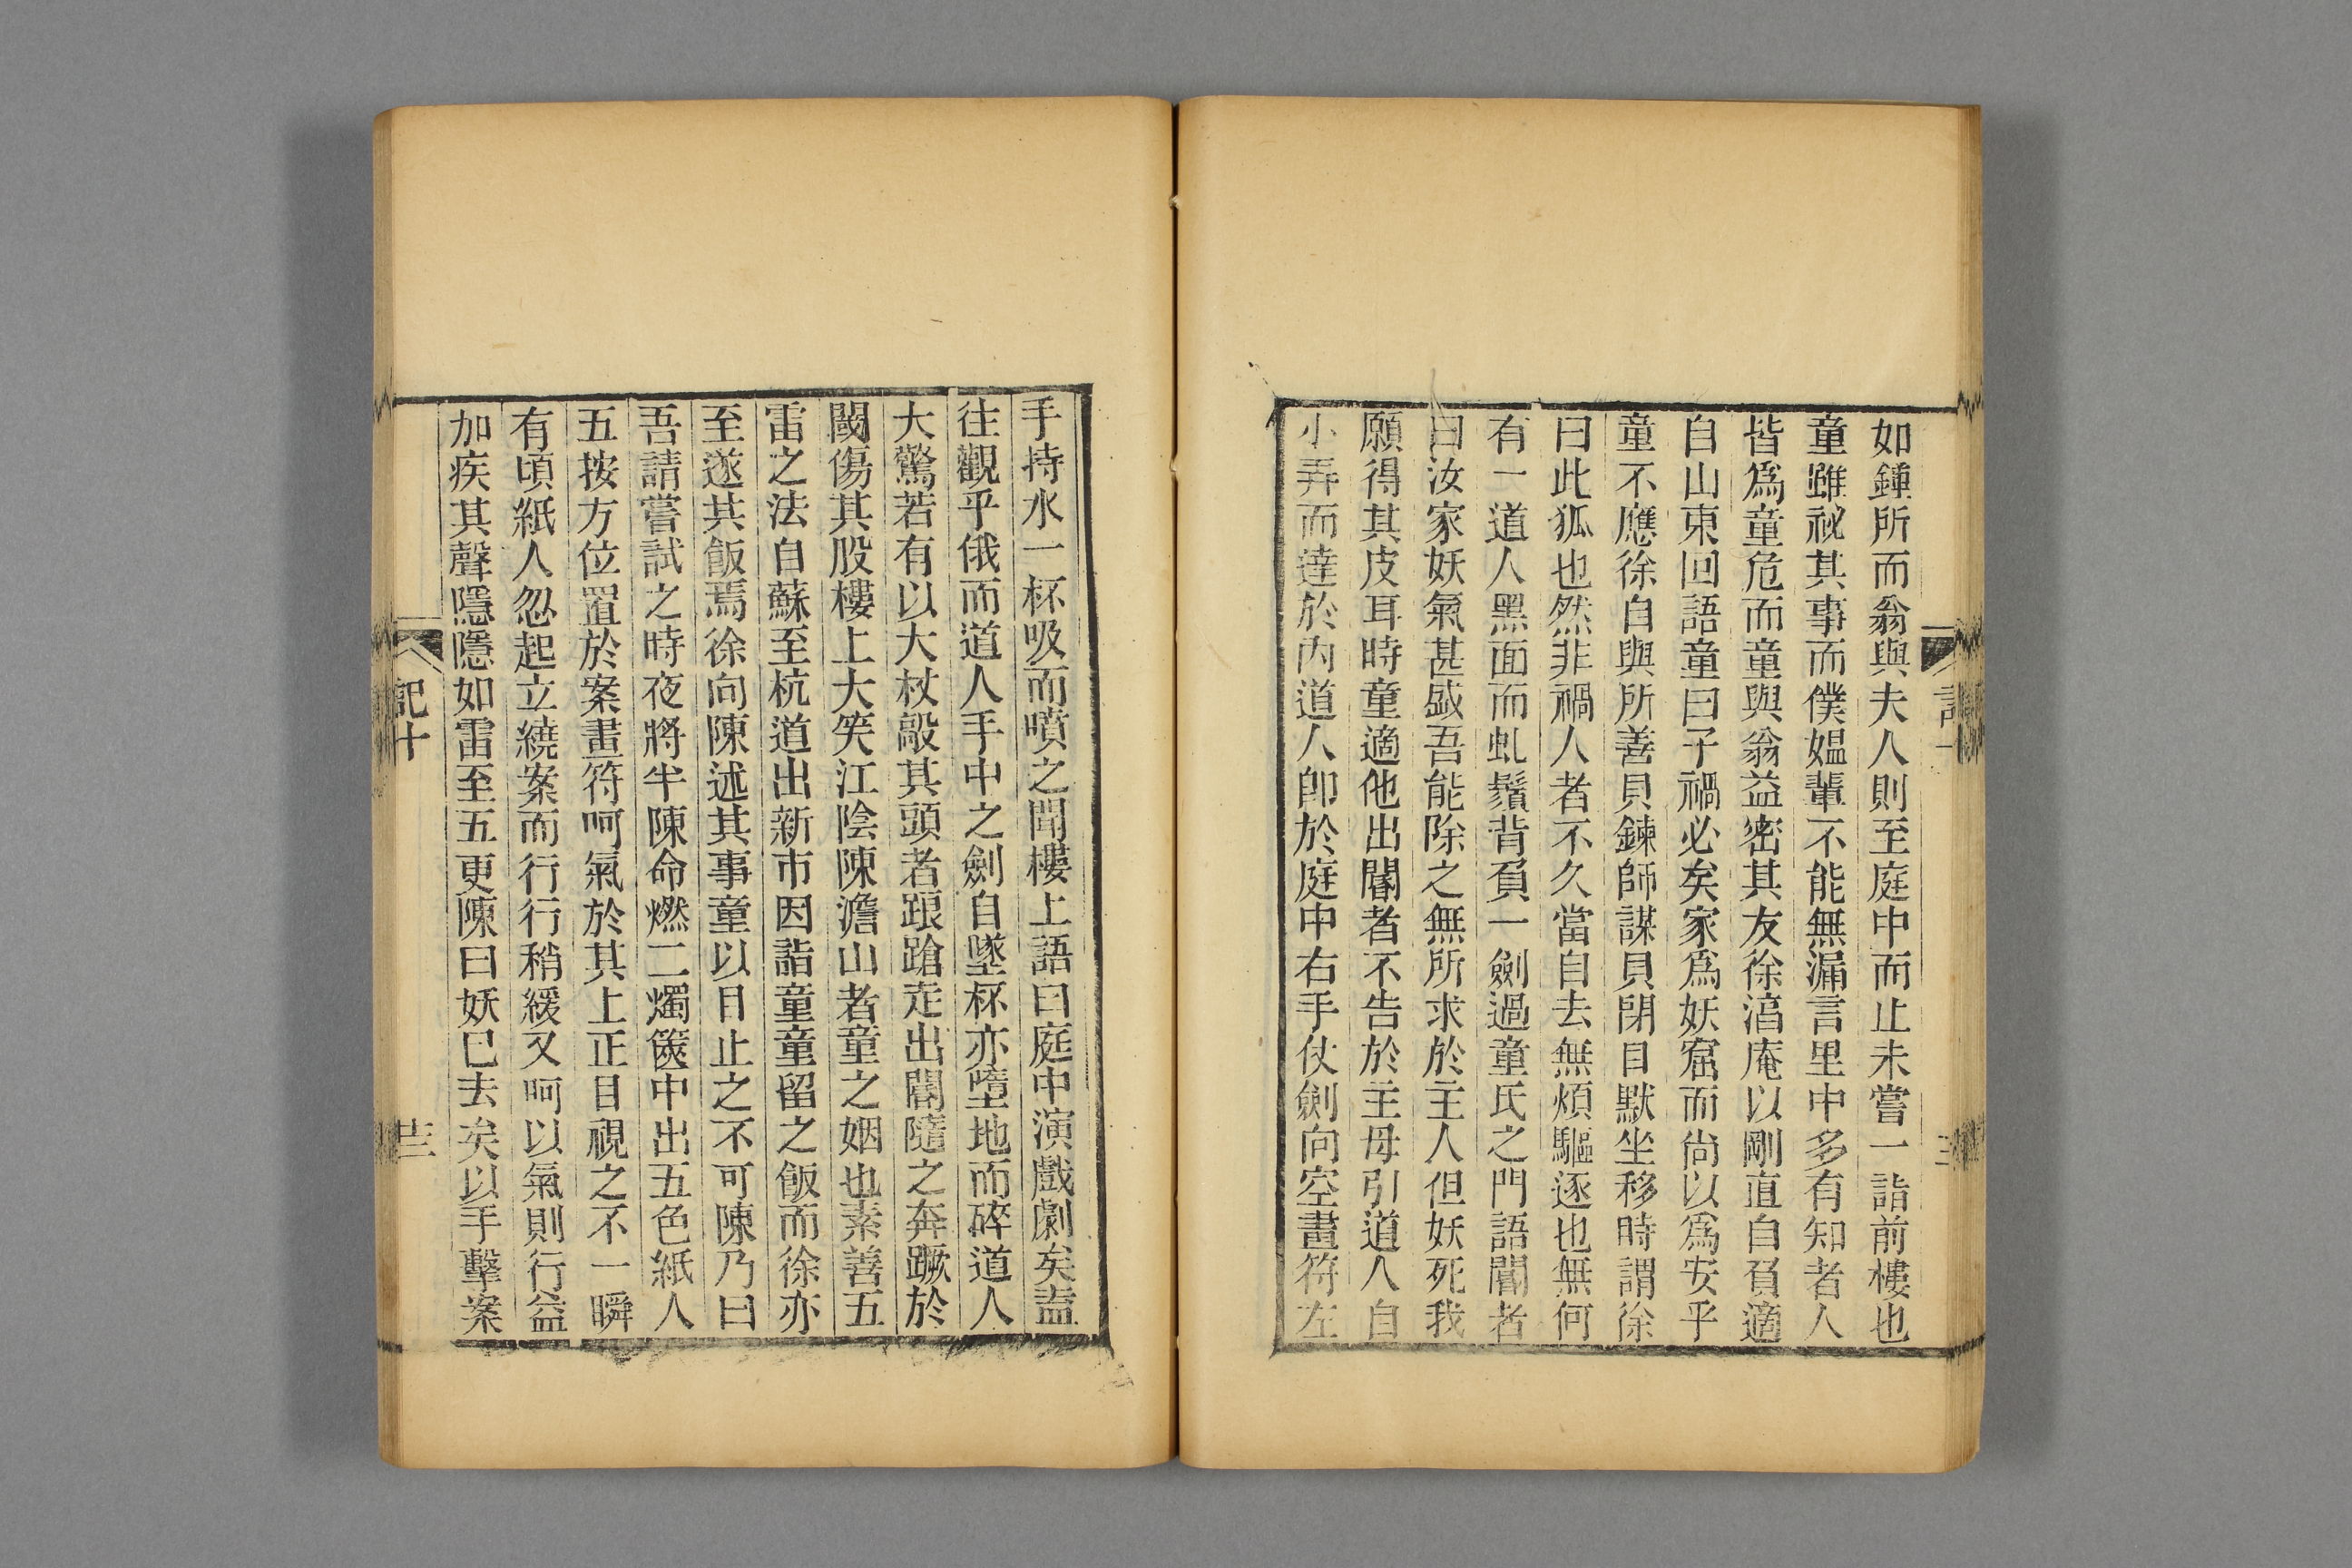 如鍾所而翁與夫人則至庭中而止未嘗一詣前樓也
童雖祕其事而僕媼輩不能無漏言里中多有知者人
皆爲童危而童與翁益密其友徐湻庵以剛直自負適
自山東回語童曰子禍必矣家爲妖窟而尙以爲安乎
童不應徐自與所善貝鍊師謀貝閉目默坐移時謂徐
曰此狐也然非禍人者不久當自去無煩驅逐也無何
有一道人黑面而虬鬚背負一劍過童氏之門語閽者
曰汝家妖氣甚盛吾能除之無所求於主人但妖死我
願得其皮耳時童適他出閽者不告於主母引道人自
小弄而達於內道人卽於庭中右手仗劍向空畫符左
手持水一杯吸而噴之聞樓上語曰庭中演戲劇矣盍
往觀乎俄而道人手中之劍自墜杯亦墮地而碎道人
大驚若有以大杖毆其頭者踉蹌走出閽隨之奔蹶於
閾傷其股樓上大笑江陰陳澹山者童之姻也素善五
雷之法自蘇至杭道出新市因詣童童留之飯而徐亦
至遂共飯焉徐向陳述其事童以目止之不可陳乃曰
吾請嘗試之時夜將半陳命燃二燭篋中出五色紙人
五按方位置於案畫符呵氣於其上正目視之不一瞬
有頃紙人忽起立繞案而行行稍緩又呵以氣則行益
加疾其聲隱隱如雷至五更陳曰妖已去矣以手擊案
記十